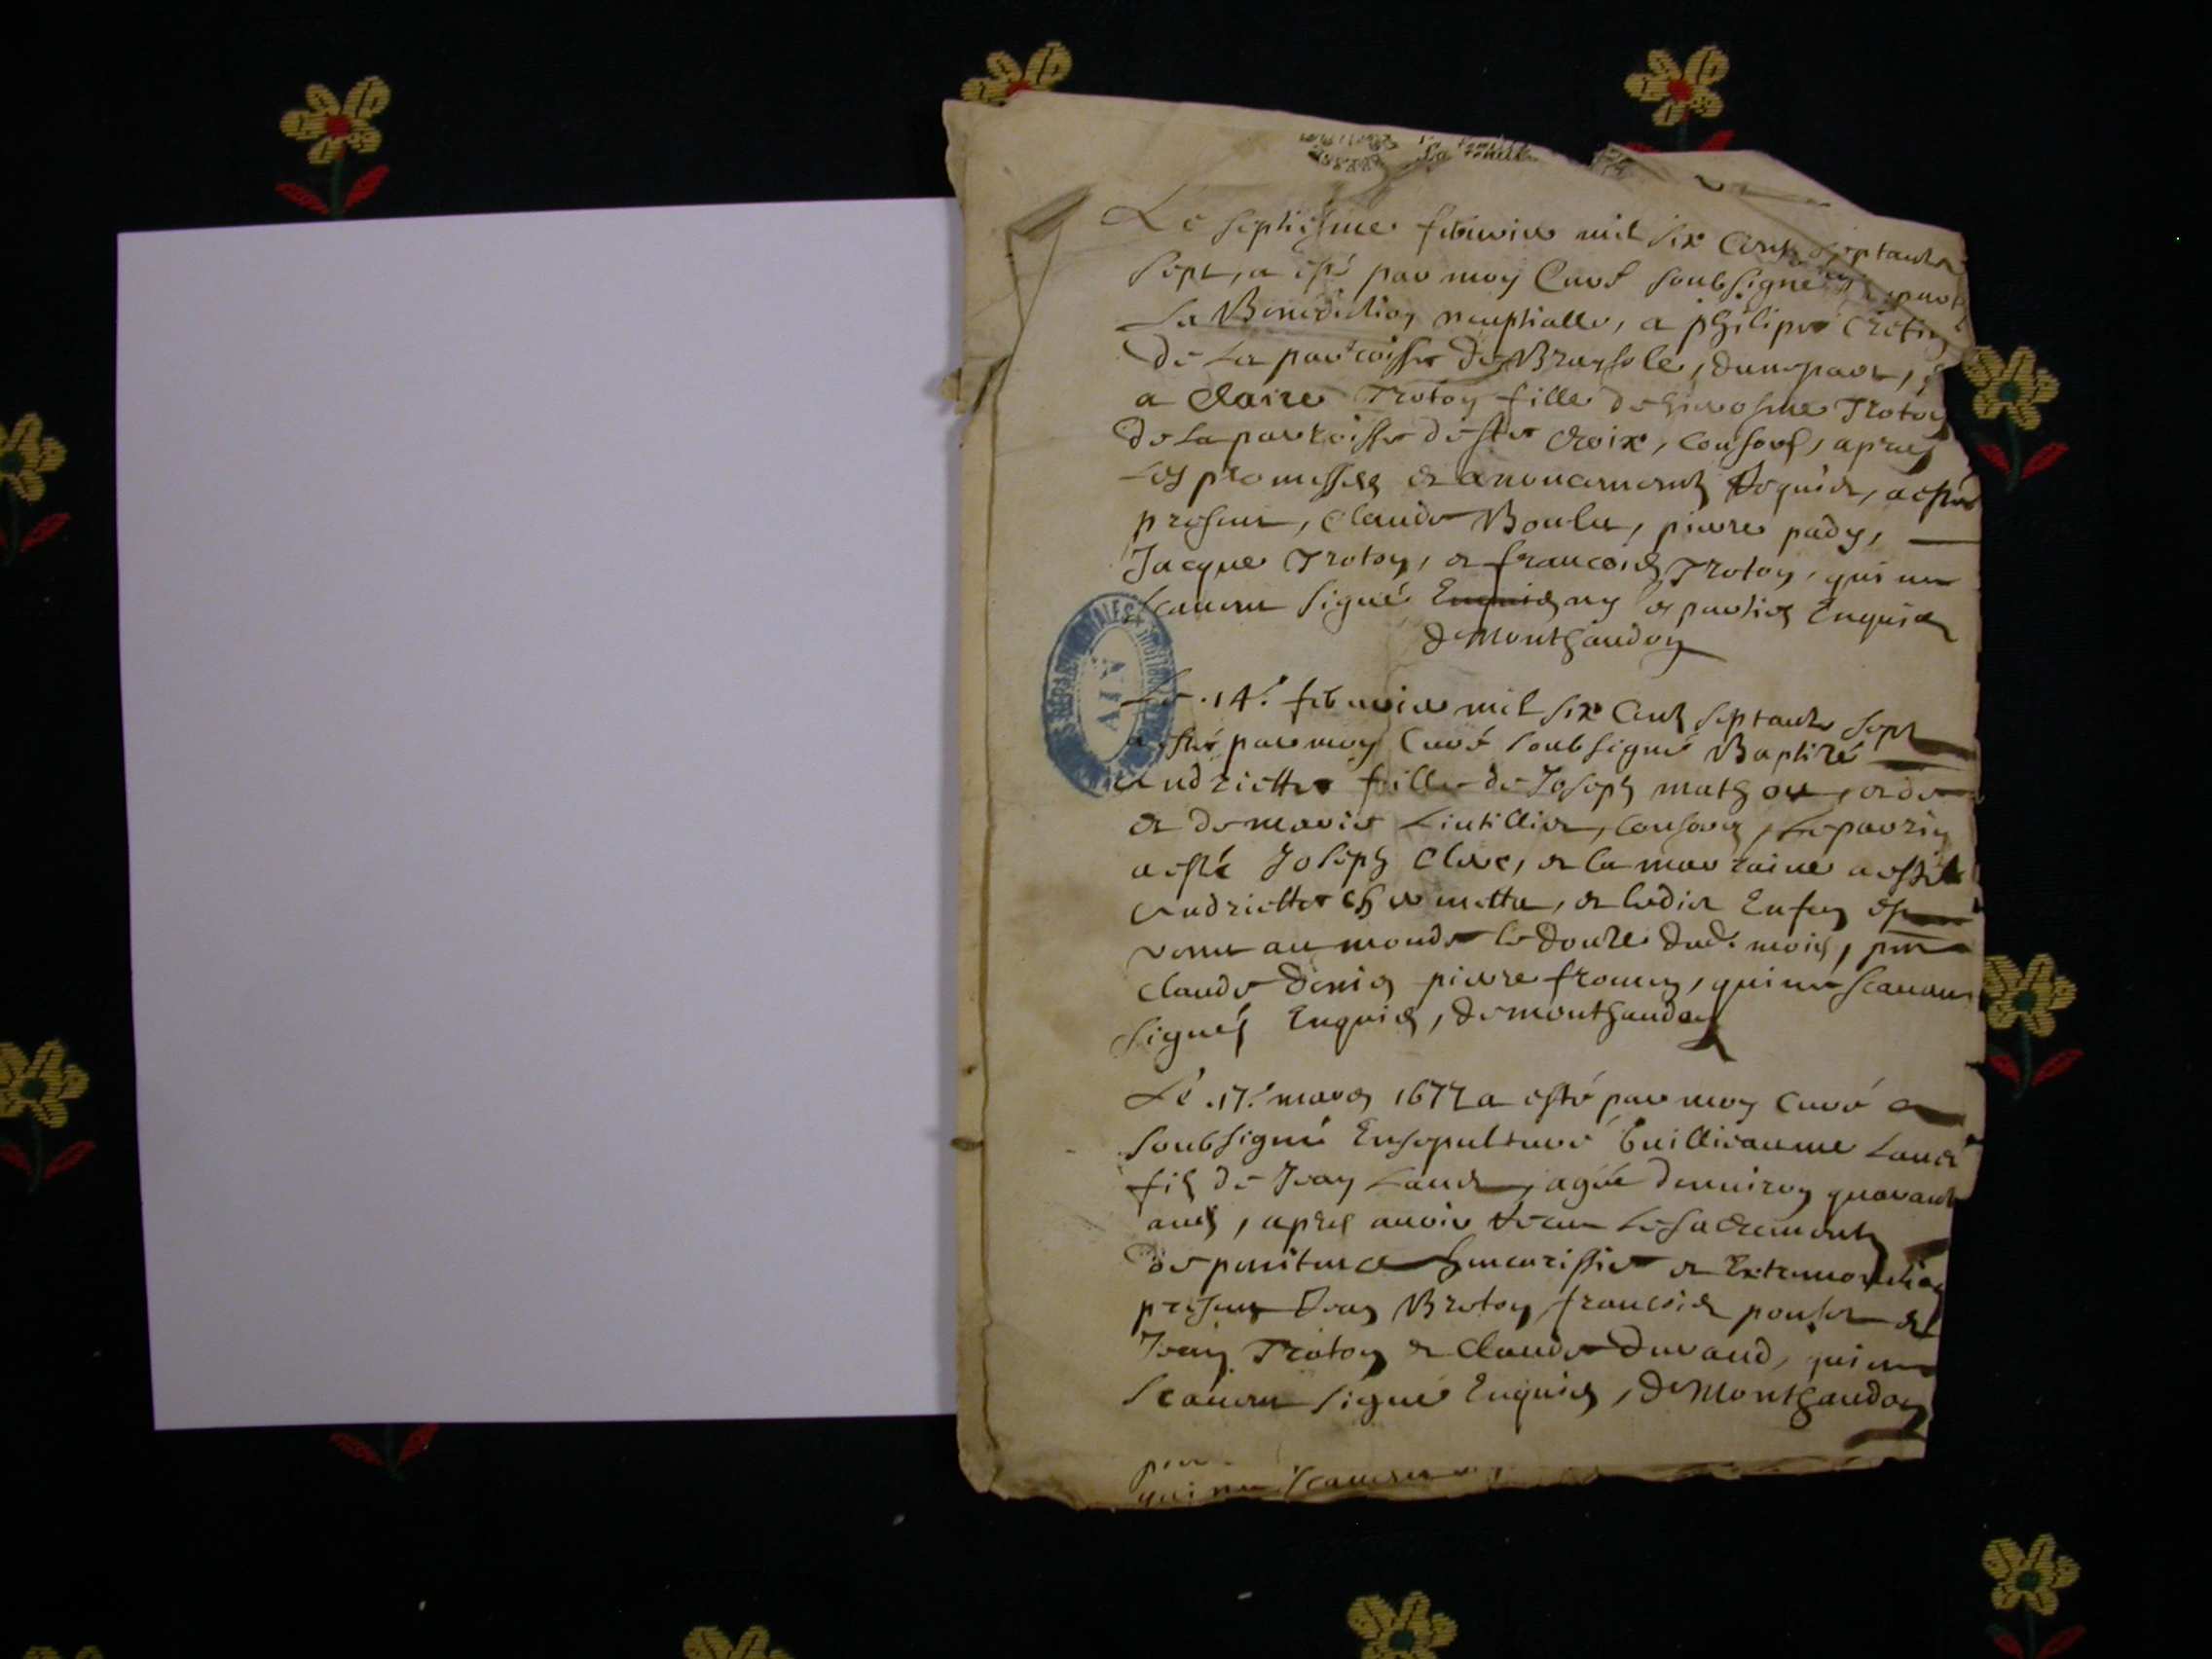 Le septiesme febvrier mil six cent septante
sept, a esté par moy Curé soubsigné départ
La Benediction nouptialle, a philipe Cretin
de La parroisse de Bressole, dune part, &
a Claire Troton fille de hierosme Troton
de La parroisse de Ste Croix, consors, apres
Les promesses et anoncements Requis, a esté
present, Claude Boulu, pierre pady,
Jacque Troton, et francois Troton, qui ne
scavent signé Enquis ny les parties Enquis
De Monthaudon
Le .14.e febvrier mil six cent septante sept
a esté par moy Curé soubsigné Baptizé
Andriette fille de Joseph mathou, et de
et de marie Lintillier, consors, Le parrin
a esté Joseph Clerc, et la marraine a esté
Andriette et ledit Enfan est
venu au monde le douze dud. moix, pnt
Claude Denis pierre froment, qui ne scavent
signés Enquis, De monthaudon
Le .17.e mars 1677 a esté par moy Curé
soubsigné Ensepulturé Guillieaume Land
fils de Jean Land, agée denviron quarante
ans, apres avoir Receu Les sacrements
de penitence heucarissie et Extremonction
present Jean Breton francois et
Jean Troton et Claude Durand, qui ne
scavent signé Enquis, De Monthaudon
qui ne scavent